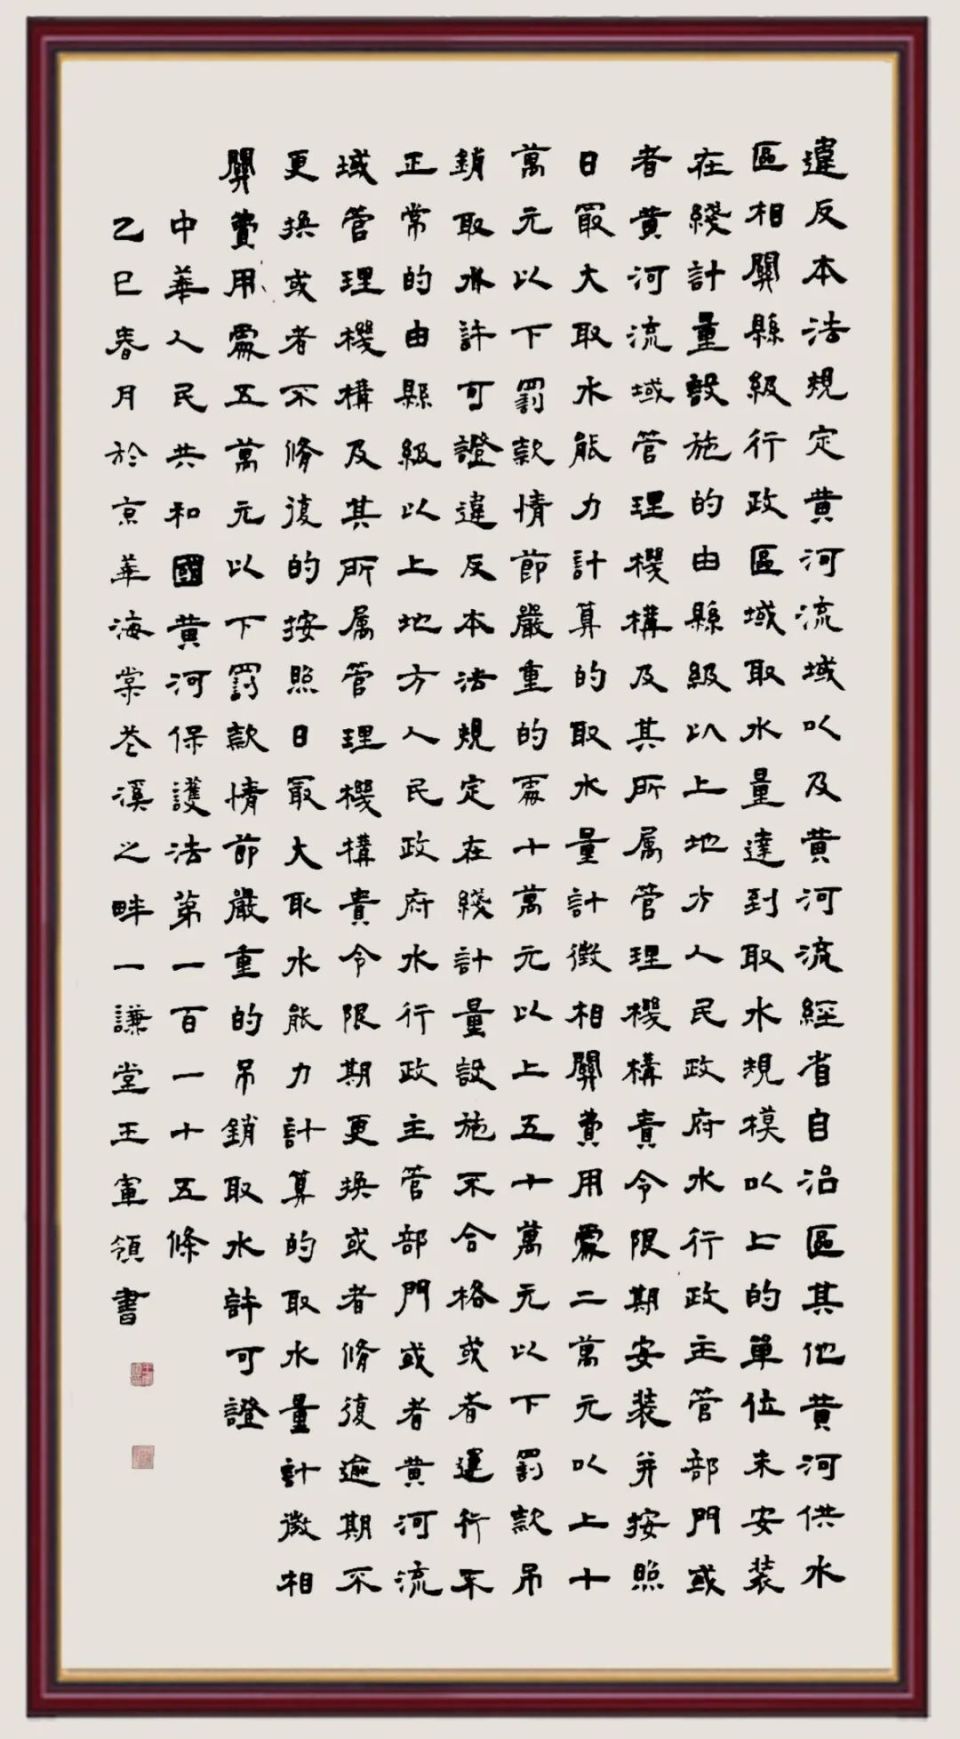 違反本法規定黄河流域以及黄河流經省自治區其他黄河供水
區相關縣級行政區域取水量達到取水規模以上的單位未安装
在綫計量設施的由縣級以上地方人民政府水行政主管部門或
者黄河流域管理機構及其所属管理機構責令限期安装并按照
日最大取水能力計算的取水量計徵相關費用處二萬元以上十
萬元以下罰款情節嚴重的處十萬元以上五十萬元以下罰款吊
銷取水許可證違反本法規定在綫計量設施不合格或者運行不
正常的由縣級以上地方人民政府水行政主管部門或者黄河流
域管理機構及其所属管理機構責令限期更换或者修復逾期不
更换或者不修復的按照日最大取水能力計算的取水量計徵相
關費用處五萬元以下罰款情節嚴重的吊銷取水許可證
中華人民共和國黄河保護法第一百一十五條
乙巳春月於京華海棠花溪之畔一謙堂王軍領書